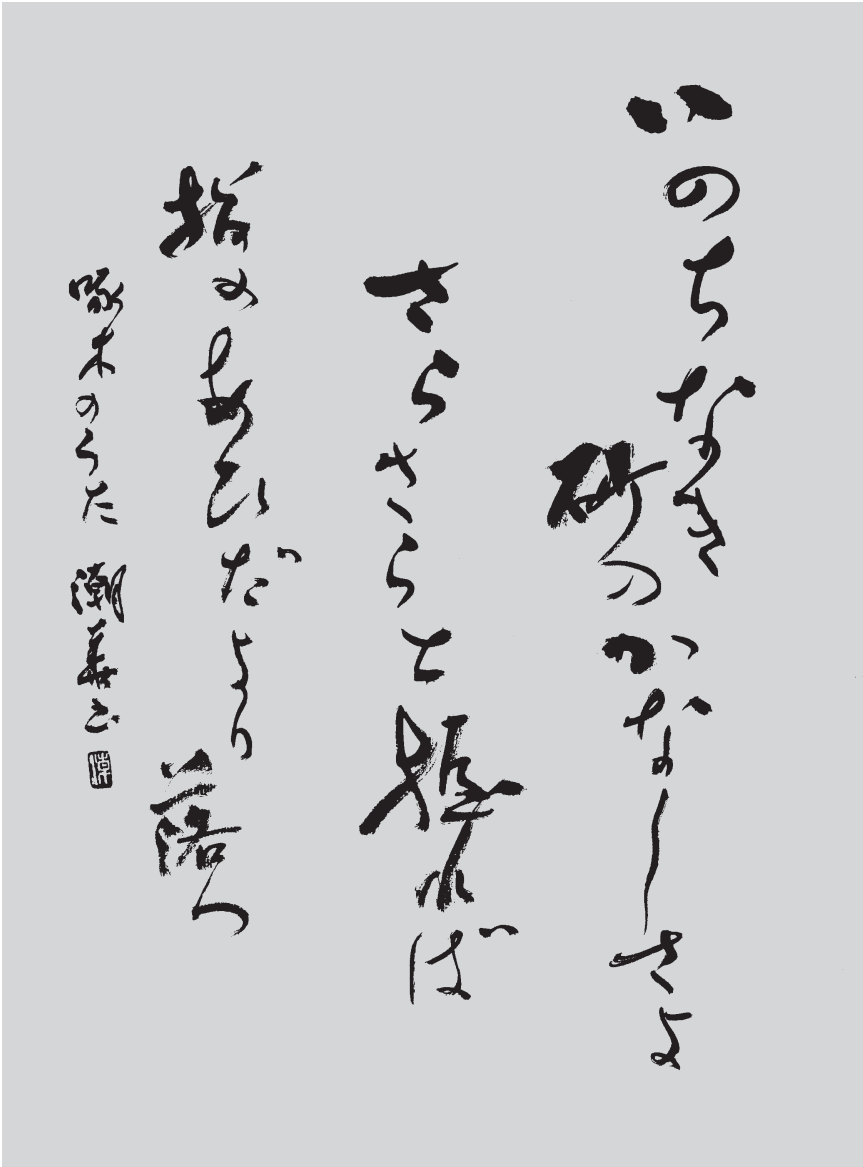 いのちなき
砂の
かなしさよ
さらさらと握れば
指のあひだより落つ
啄木のうた 潮華書